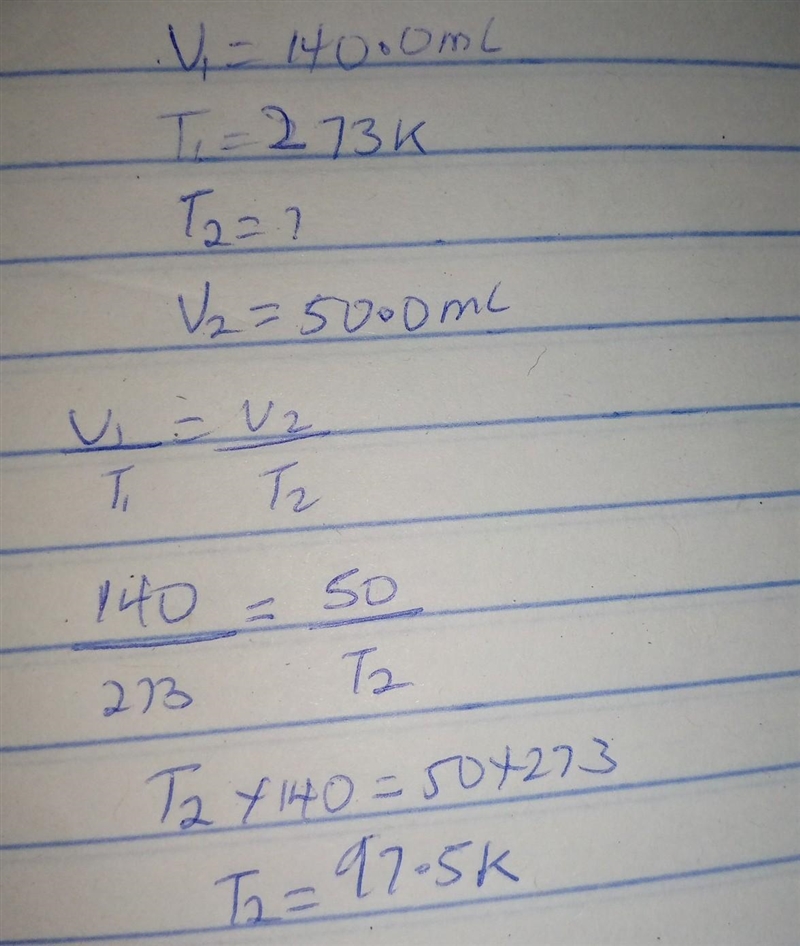 V₁ = 140.0mL
T₁ = 273K
T₂ = ?
V₂ = 50.0mL
V₁/T₁ = V₂/T₂
140/273 = 50/T₂
T₂ × 140 = 50 × 273
T₂ = 97.5K